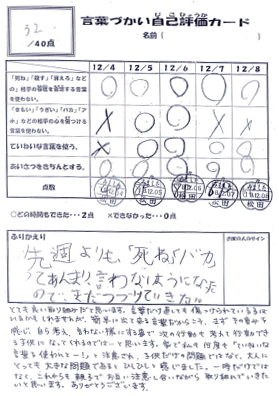 32
/40点
言葉づかい自己評価カード
名前（　　　　　）
12/4 12/5 12/6 12/7 12/8
「死ね」「殺す」「消えろ」など
の、相手の存在を否定する言葉
を使わない。
「きもい」「うざい」「バカ」「ア
ホ」などの相手の心を傷つける
言葉を使わない。
ていねいな言葉を使う。
あいさつをきちんとする。
点数
○どの時間もできた…2点　×できなかった…0点
ふりかえり
先週よりも、「死ね」「バカ」
ってあんまり言わないようになった
ので、またつづけていきたい。
とても良い取り組みだと思います。言葉だけ通しても傷つけられている子は
いるかもしれませんが、簡単に出てくる言葉だからこそ、まずその重さを
感じ、自ら考え、言わない様にする事で次の行動も考えて行動でき
る子供になってくれるのではと思います。家でも私も何度も「ていねいな
言葉を使われと…」と注意され、子供だけの問題ではなく、大人に
とっても大きな問題であるとひしひしと感じました。一時だけでは
なく、これからも親子でお互い注意し合いながら取り組めていきた
いと思います。ありがとうございます。